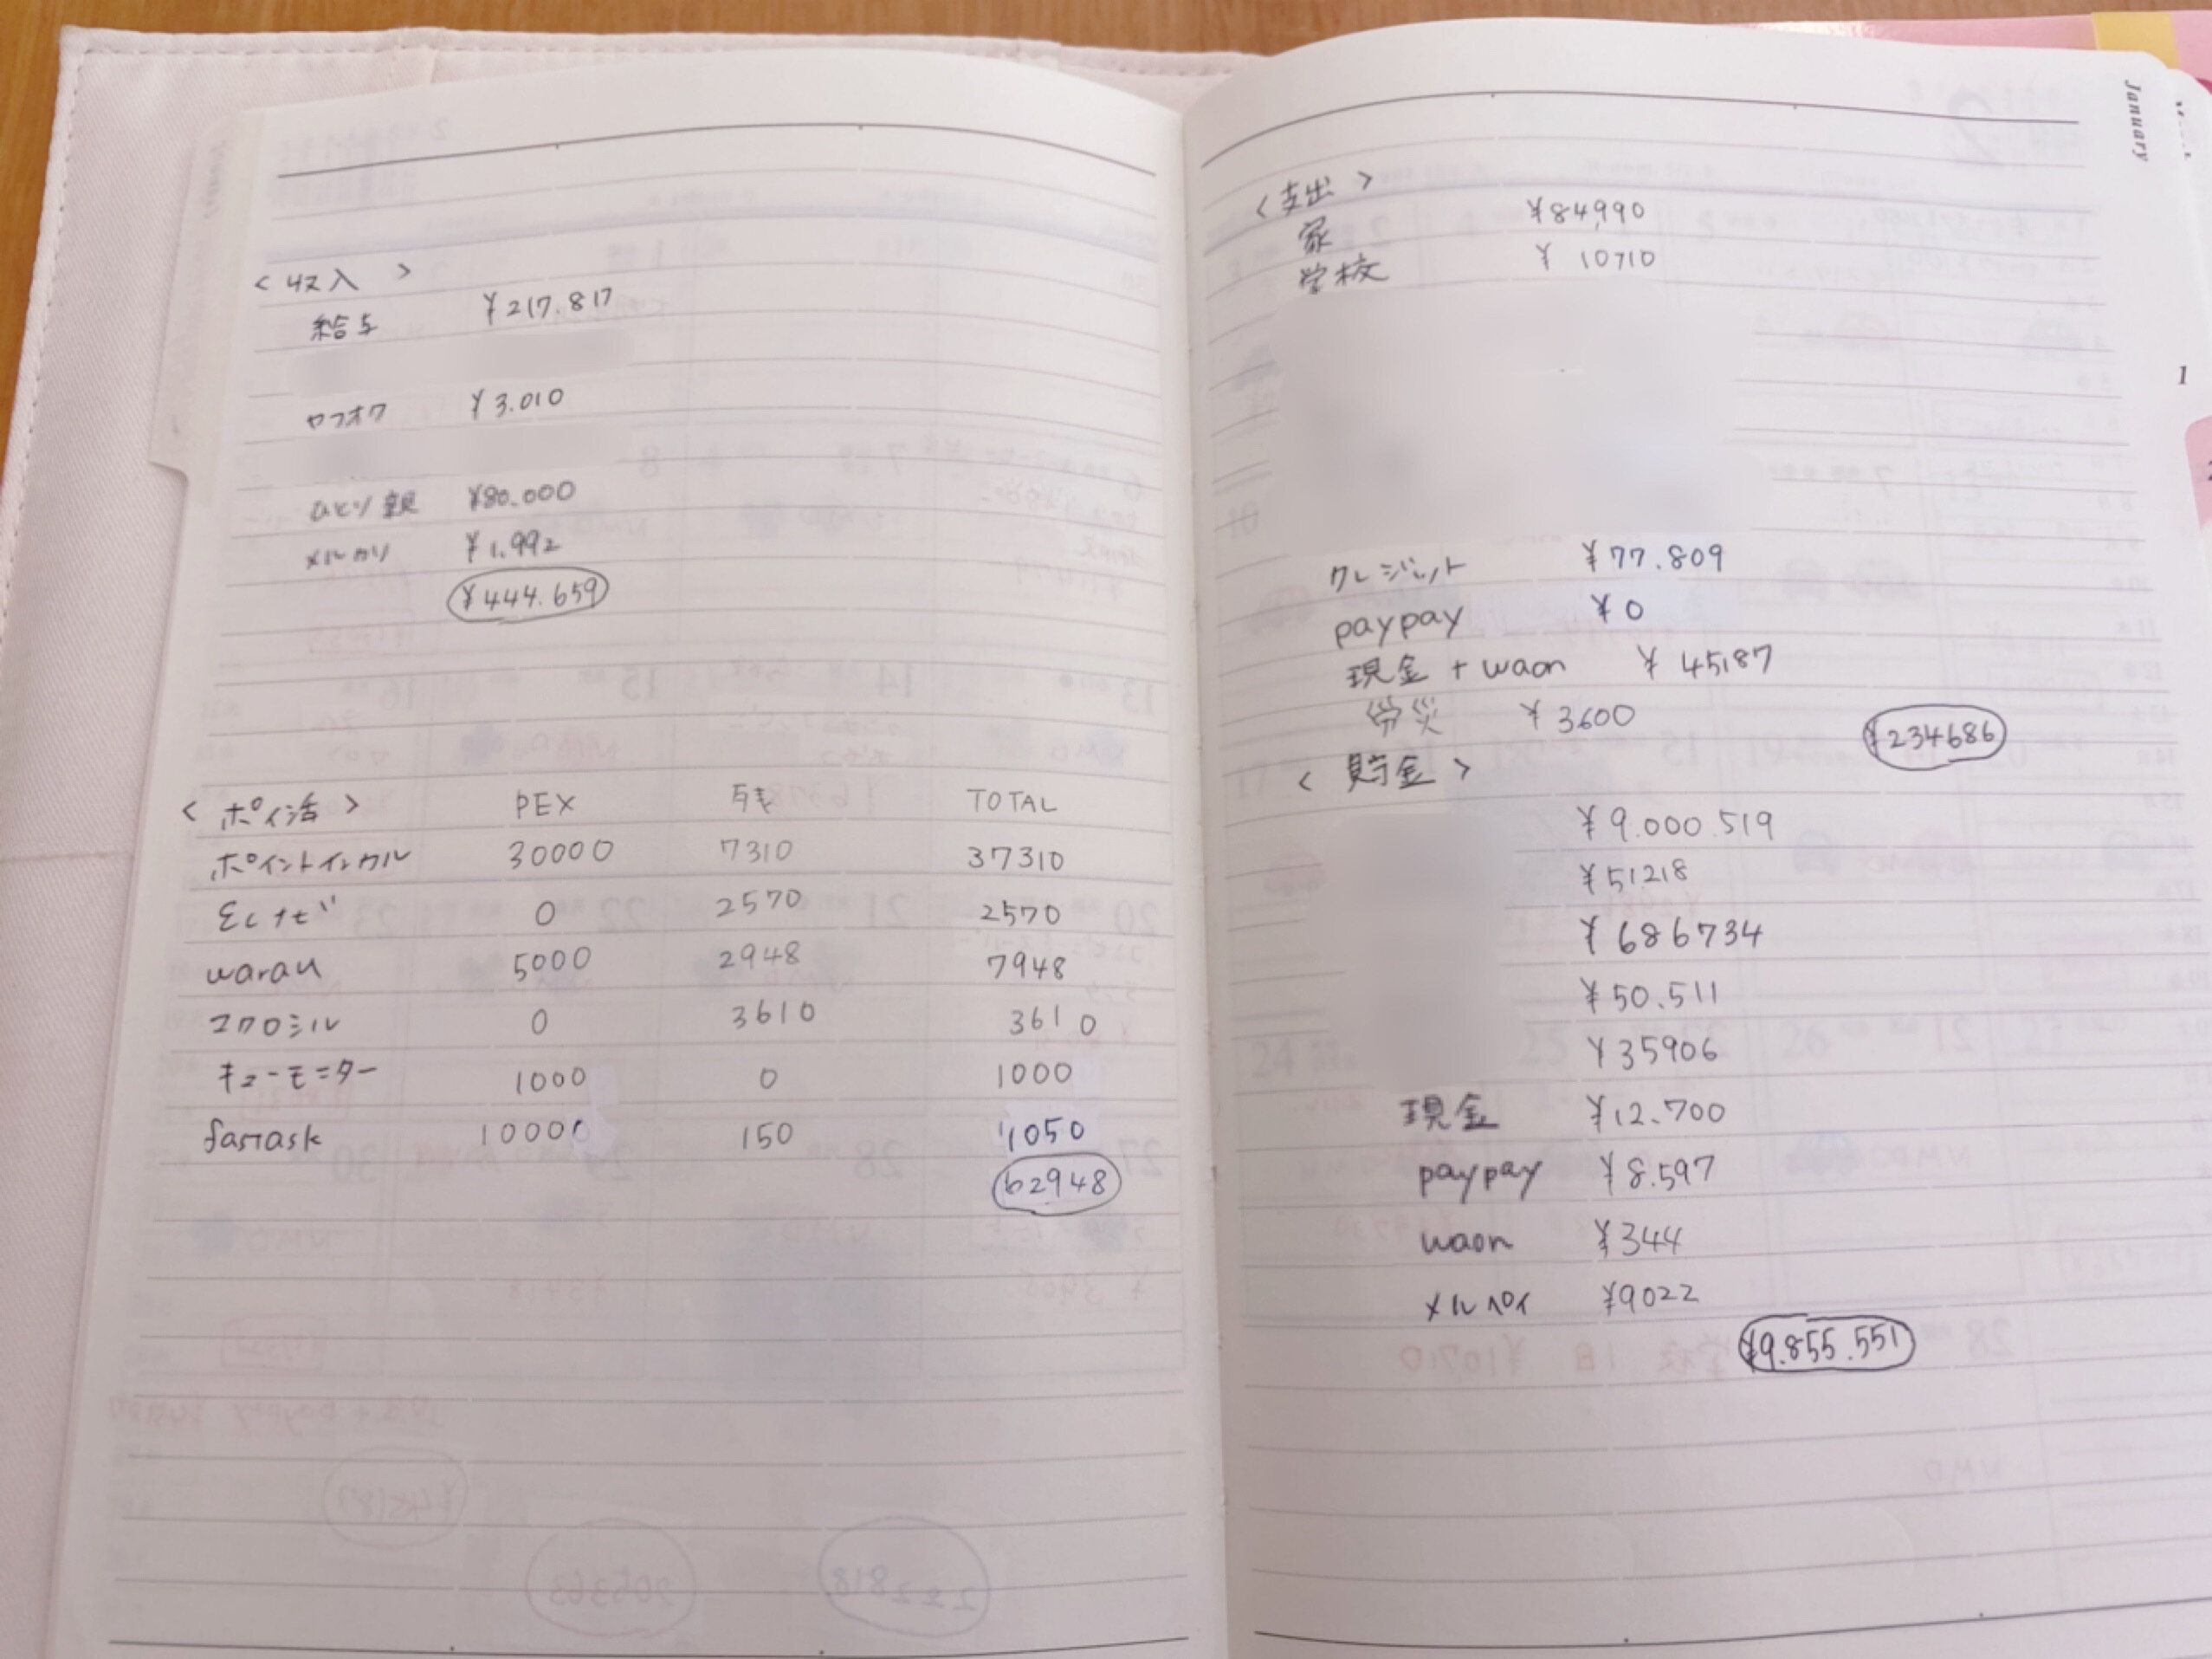 <収入>
給与 ¥217.817
ヤフオク ¥3.010
ひとり親 ¥80.000
メルカリ ¥1.992
¥444.659
<ポイ活> PEX 残 TOTAL
ポイントインカム 30000 7310 37310
ECナビ 0 2570 2570
warau 5000 2948 7948
マクロミル 0 3610 3610
キューモニター 1000 0 1000
fastask 10000 150 1050
62948
January
1
<支出>
家 ¥84,990
学校 ¥10710
クレジット ¥77.809
paypay ¥0
現金+waon ¥45187
労災 ¥3600
¥234686
<貯金>
¥9.000.519
¥51218
¥686734
¥50.511
¥35906
現金 ¥12.700
paypay ¥8.597
waon ¥344
メルペイ ¥9022
¥9.855.551